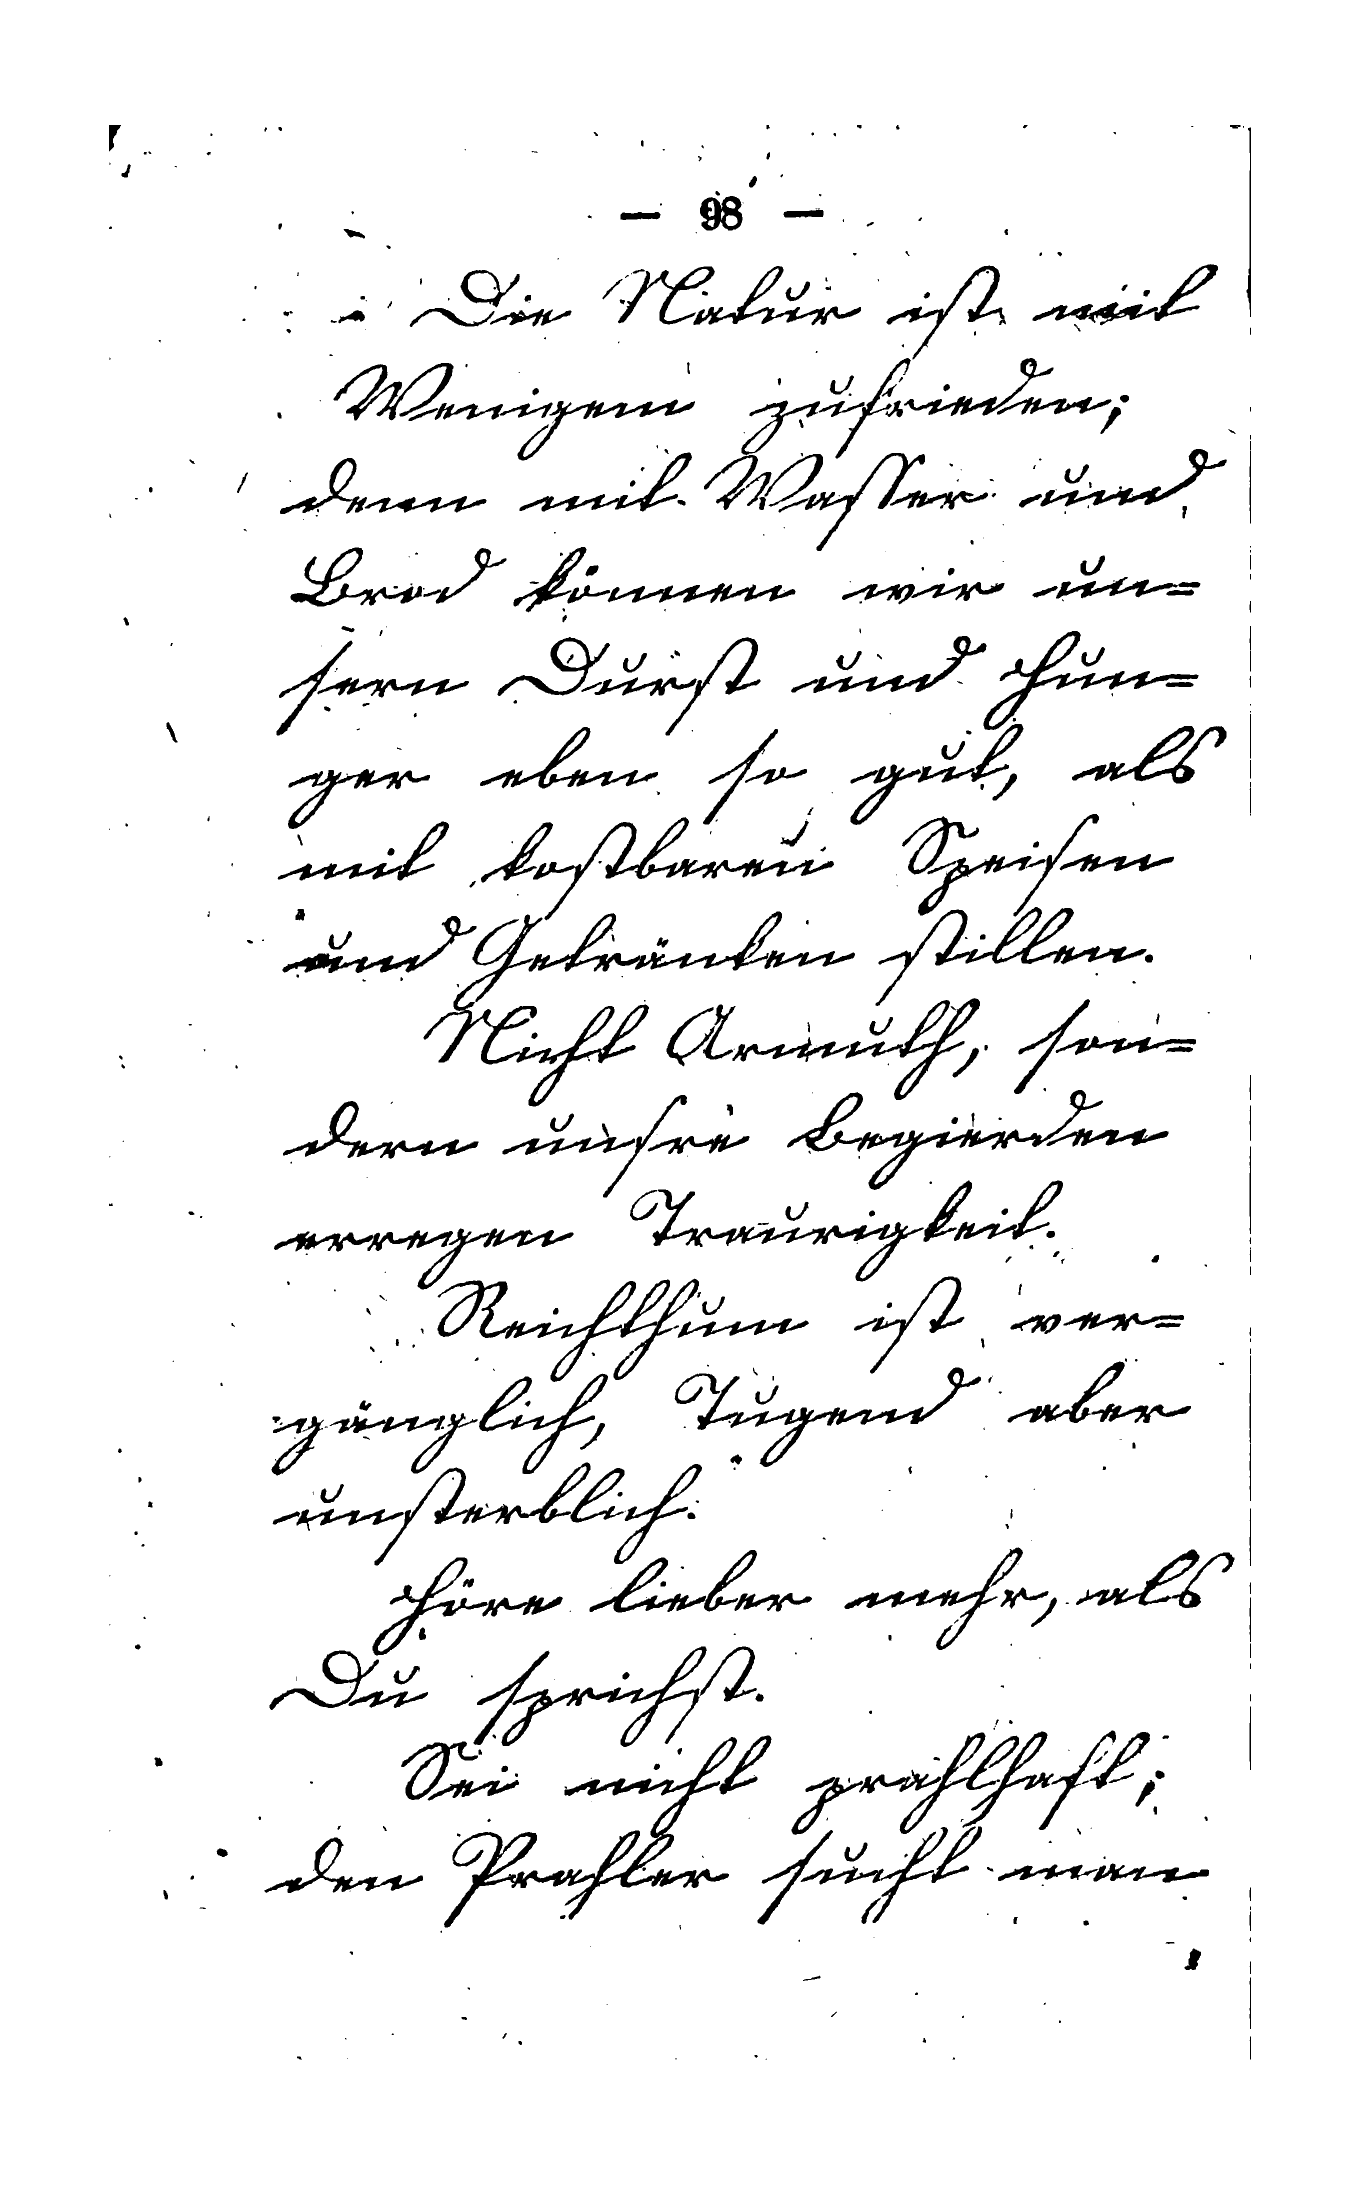 — 98 —
Die Natur ist mit
Wenigem zufrieden;
denn mit Wasser und
Brod können wir un=
sern Durst und Hun=
ger eben so gut, als
mit kostbaren Speisen
und Getränken stillen.
Nicht Armuth, son=
dern unsre Begierden
erregen Traurigkeit.
Reichthum ist ver=
gänglich, Tugend aber
unsterblich.
Höre lieber mehr, als
Du sprichst.
Sei nicht prahlhaft;
den Prahler sucht man